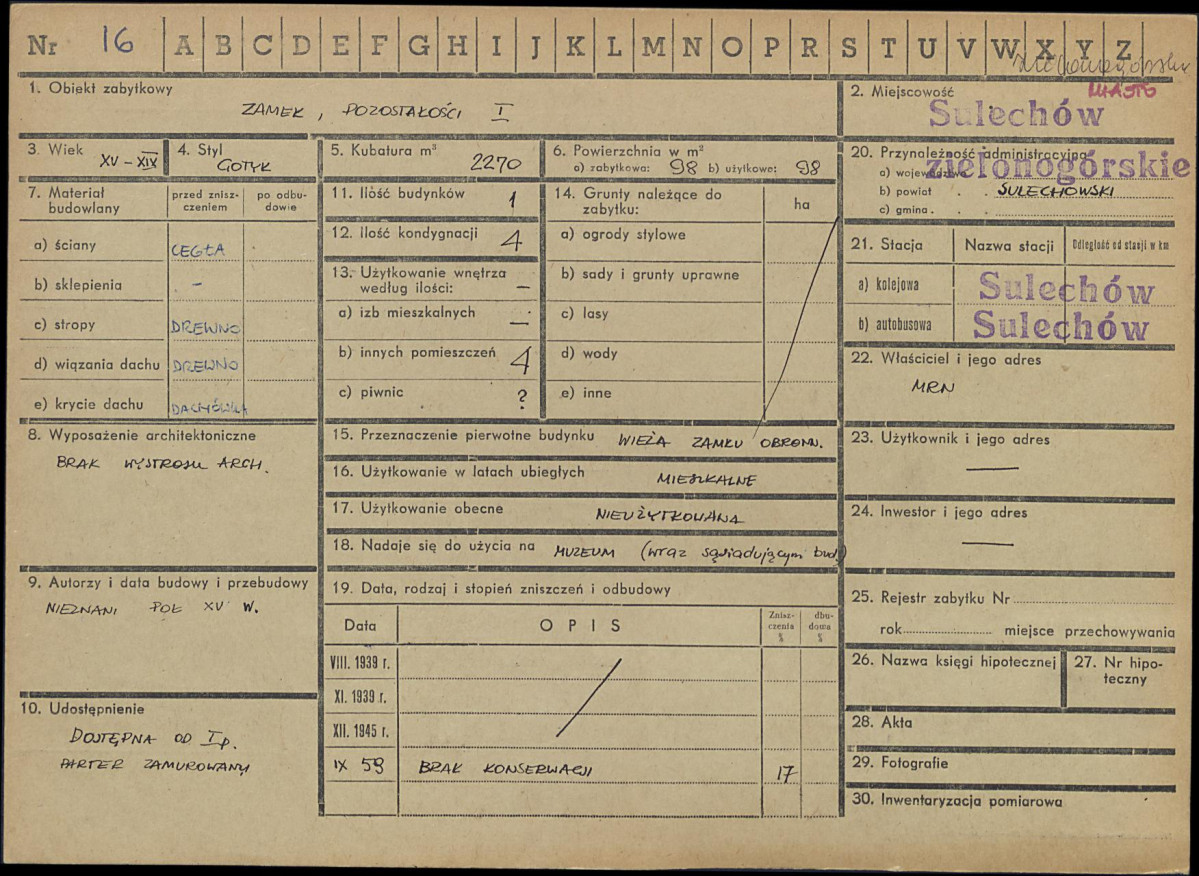 Nr 16 A B C D E F G H I J K L M N O P R S T U V W X Y Z
1. Obiekt zabytkowy
ZAMEK, POZOSTAŁOŚCI I
2. Miejscowość
MIASTO
Sulechów
3. Wiek
XV – XIX
4. Styl
GOTYK
5. Kubatura m³
2270
6. Powierzchnia w m²
a) zabytkowa: 98 b) użytkowa: 98
20. Przynależność administracyjna
a) województwo
zielonogórskie
b) powiat . . SULECHOWSKI
c) gmina . . .
7. Materiał budowlany
przed znisz-
czeniem
po odbu-
dowie
a) ściany CEGŁA
b) sklepienia –
c) stropy DREWNO
d) wiązania dachu DREWNO
e) krycie dachu DACHÓWKA
11. Ilość budynków 1
12. Ilość kondygnacji 4
13. Użytkowanie wnętrza
według ilości: –
a) izb mieszkalnych –
b) innych pomieszczeń 4
c) piwnic ?
14. Grunty należące do
zabytku:
ha
a) ogrody stylowe
b) sady i grunty uprawne
c) lasy
d) wody
e) inne
21. Stacja Nazwa stacji Odległość od stacji w km
a) kolejowa Sulechów
b) autobusowa Sulechów
22. Właściciel i jego adres
MRN
8. Wyposażenie architektoniczne
BRAK WYSTROJU ARCH.
15. Przeznaczenie pierwotne budynku WIEŻA ZAMKU OBRONN.
16. Użytkowanie w latach ubiegłych MIESZKALNE
17. Użytkowanie obecne NIEUŻYTKOWANA
18. Nadaje się do użycia na MUZEUM (wraz sąsiadującym bud.)
23. Użytkownik i jego adres
—
24. Inwestor i jego adres
—
9. Autorzy i data budowy i przebudowy
NIEZNANI POŁ XV W.
19. Data, rodzaj i stopień zniszczeń i odbudowy
Data OPIS
Znisz-
czenia
%
dbu-
dowa
%
VIII. 1939 r.
XI. 1939 r.
XII. 1945 r.
IX 59 BRAK KONSERWACJI 17
25. Rejestr zabytku Nr
rok miejsce przechowywania
26. Nazwa księgi hipotecznej
27. Nr hipo-
teczny
10. Udostępnienie
DOSTĘPNA OD I p.
PARTER ZAMUROWANY
28. Akta
29. Fotografie
30. Inwentaryzacja pomiarowa